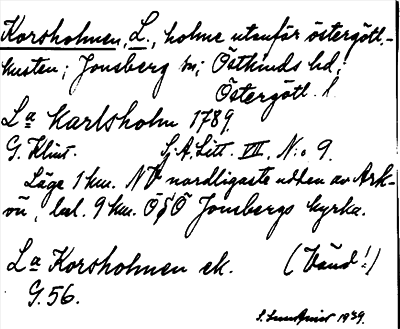 Korsholmen, L., holme utanför östergötl.-
kusten; Jonsberg sn; Östkinds hd;
Östergötl. l
La Karlsholm 1789.
G. Klint. Sj.A. Litt. VII, N:o 9.
Läge 1 km. NV nordligaste udden av Ark-
ön, bel. 9 km. ÖSÖ Jonsbergs kyrka.
La Korsholmen ek. (Vänd!)
G.56.
1939.